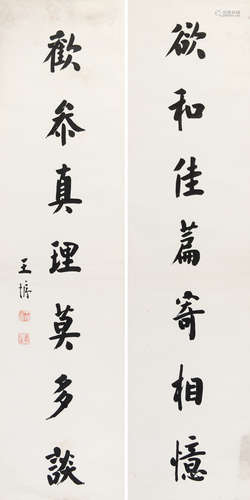 欲和佳篇寄相憶
歡參真理莫多談